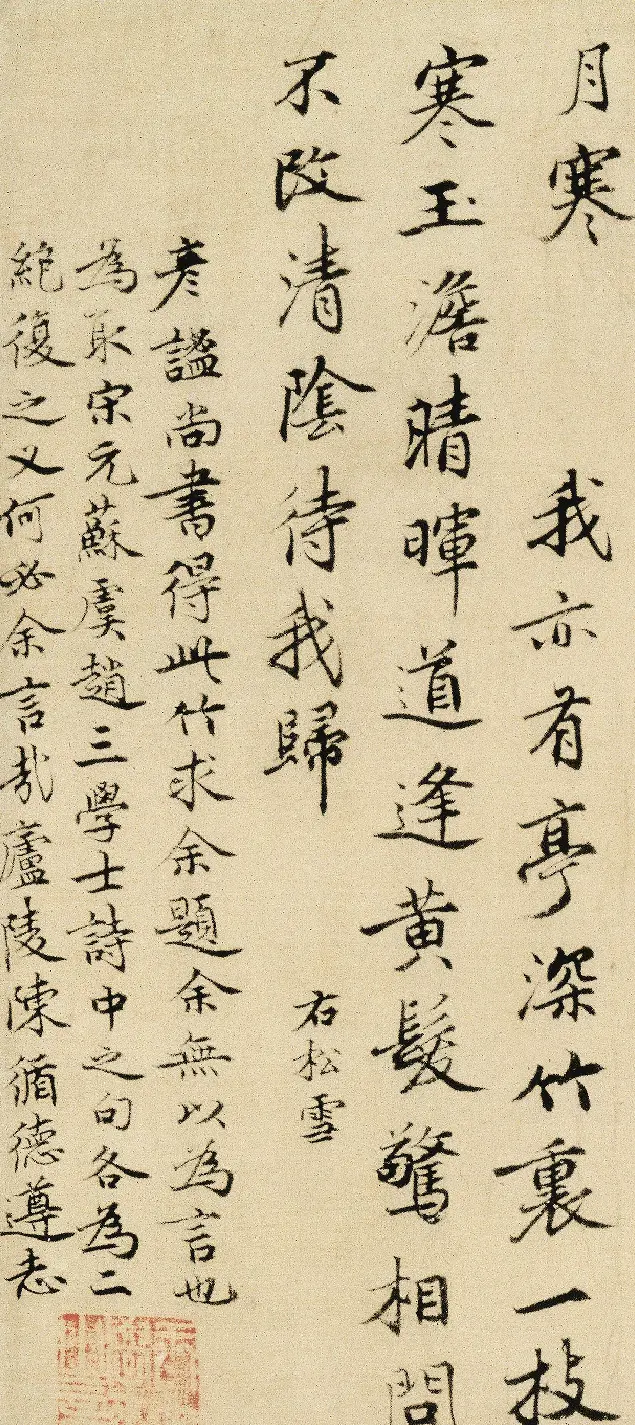 月寒　我亦有亭深竹裏一枝
寒玉澹晴暉道逢黄髮驚相問
不改清陰待我歸　右松雪
彦謐尚書得此竹求余題余無以為言也
為取宋元蘇虞趙三學士詩中之句各為二
絶復之又何必余言哉廬陵陳循德遵志